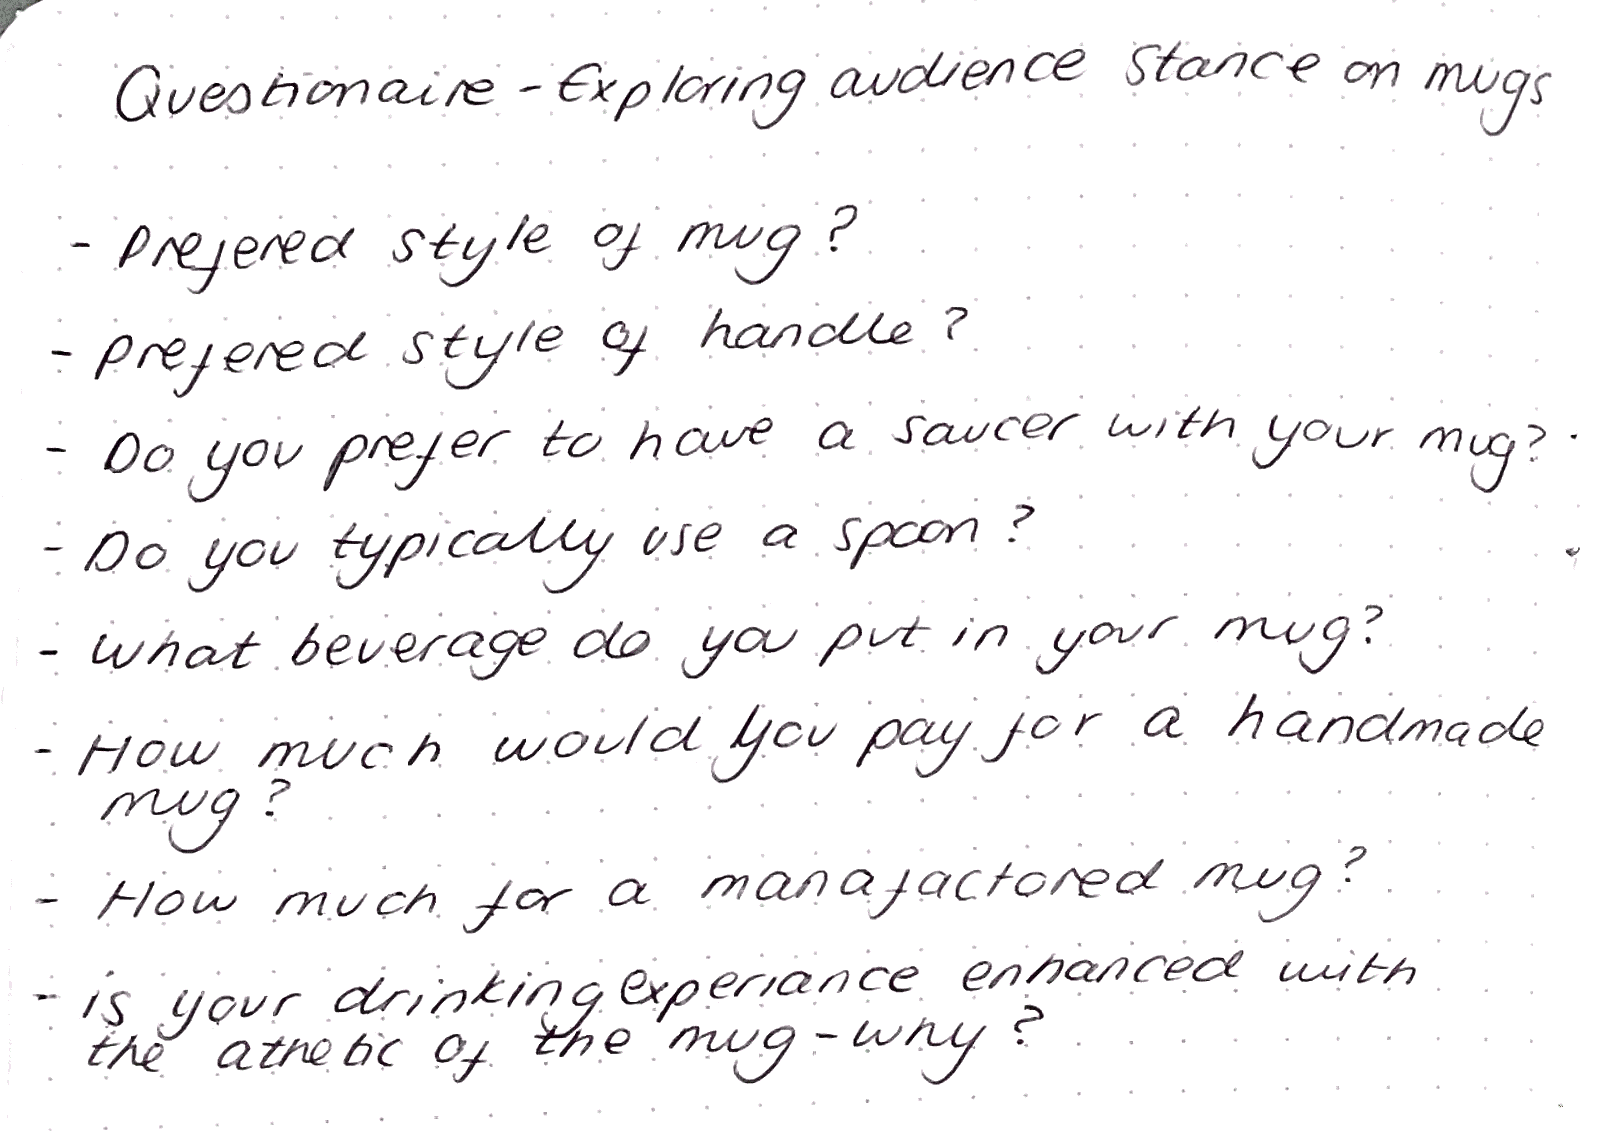 Questionaire - Exploring audience stance on mugs
- prefered style of mug?
- prefered style of handle?
- Do you prefer to have a saucer with your mug?
- Do you typically use a spoon?
- what beverage do you put in your mug?
- How much would you pay for a handmade
mug?
- How much for a manafactored mug?
- is your drinking experiance enhanced with
the athetic of the mug - why?